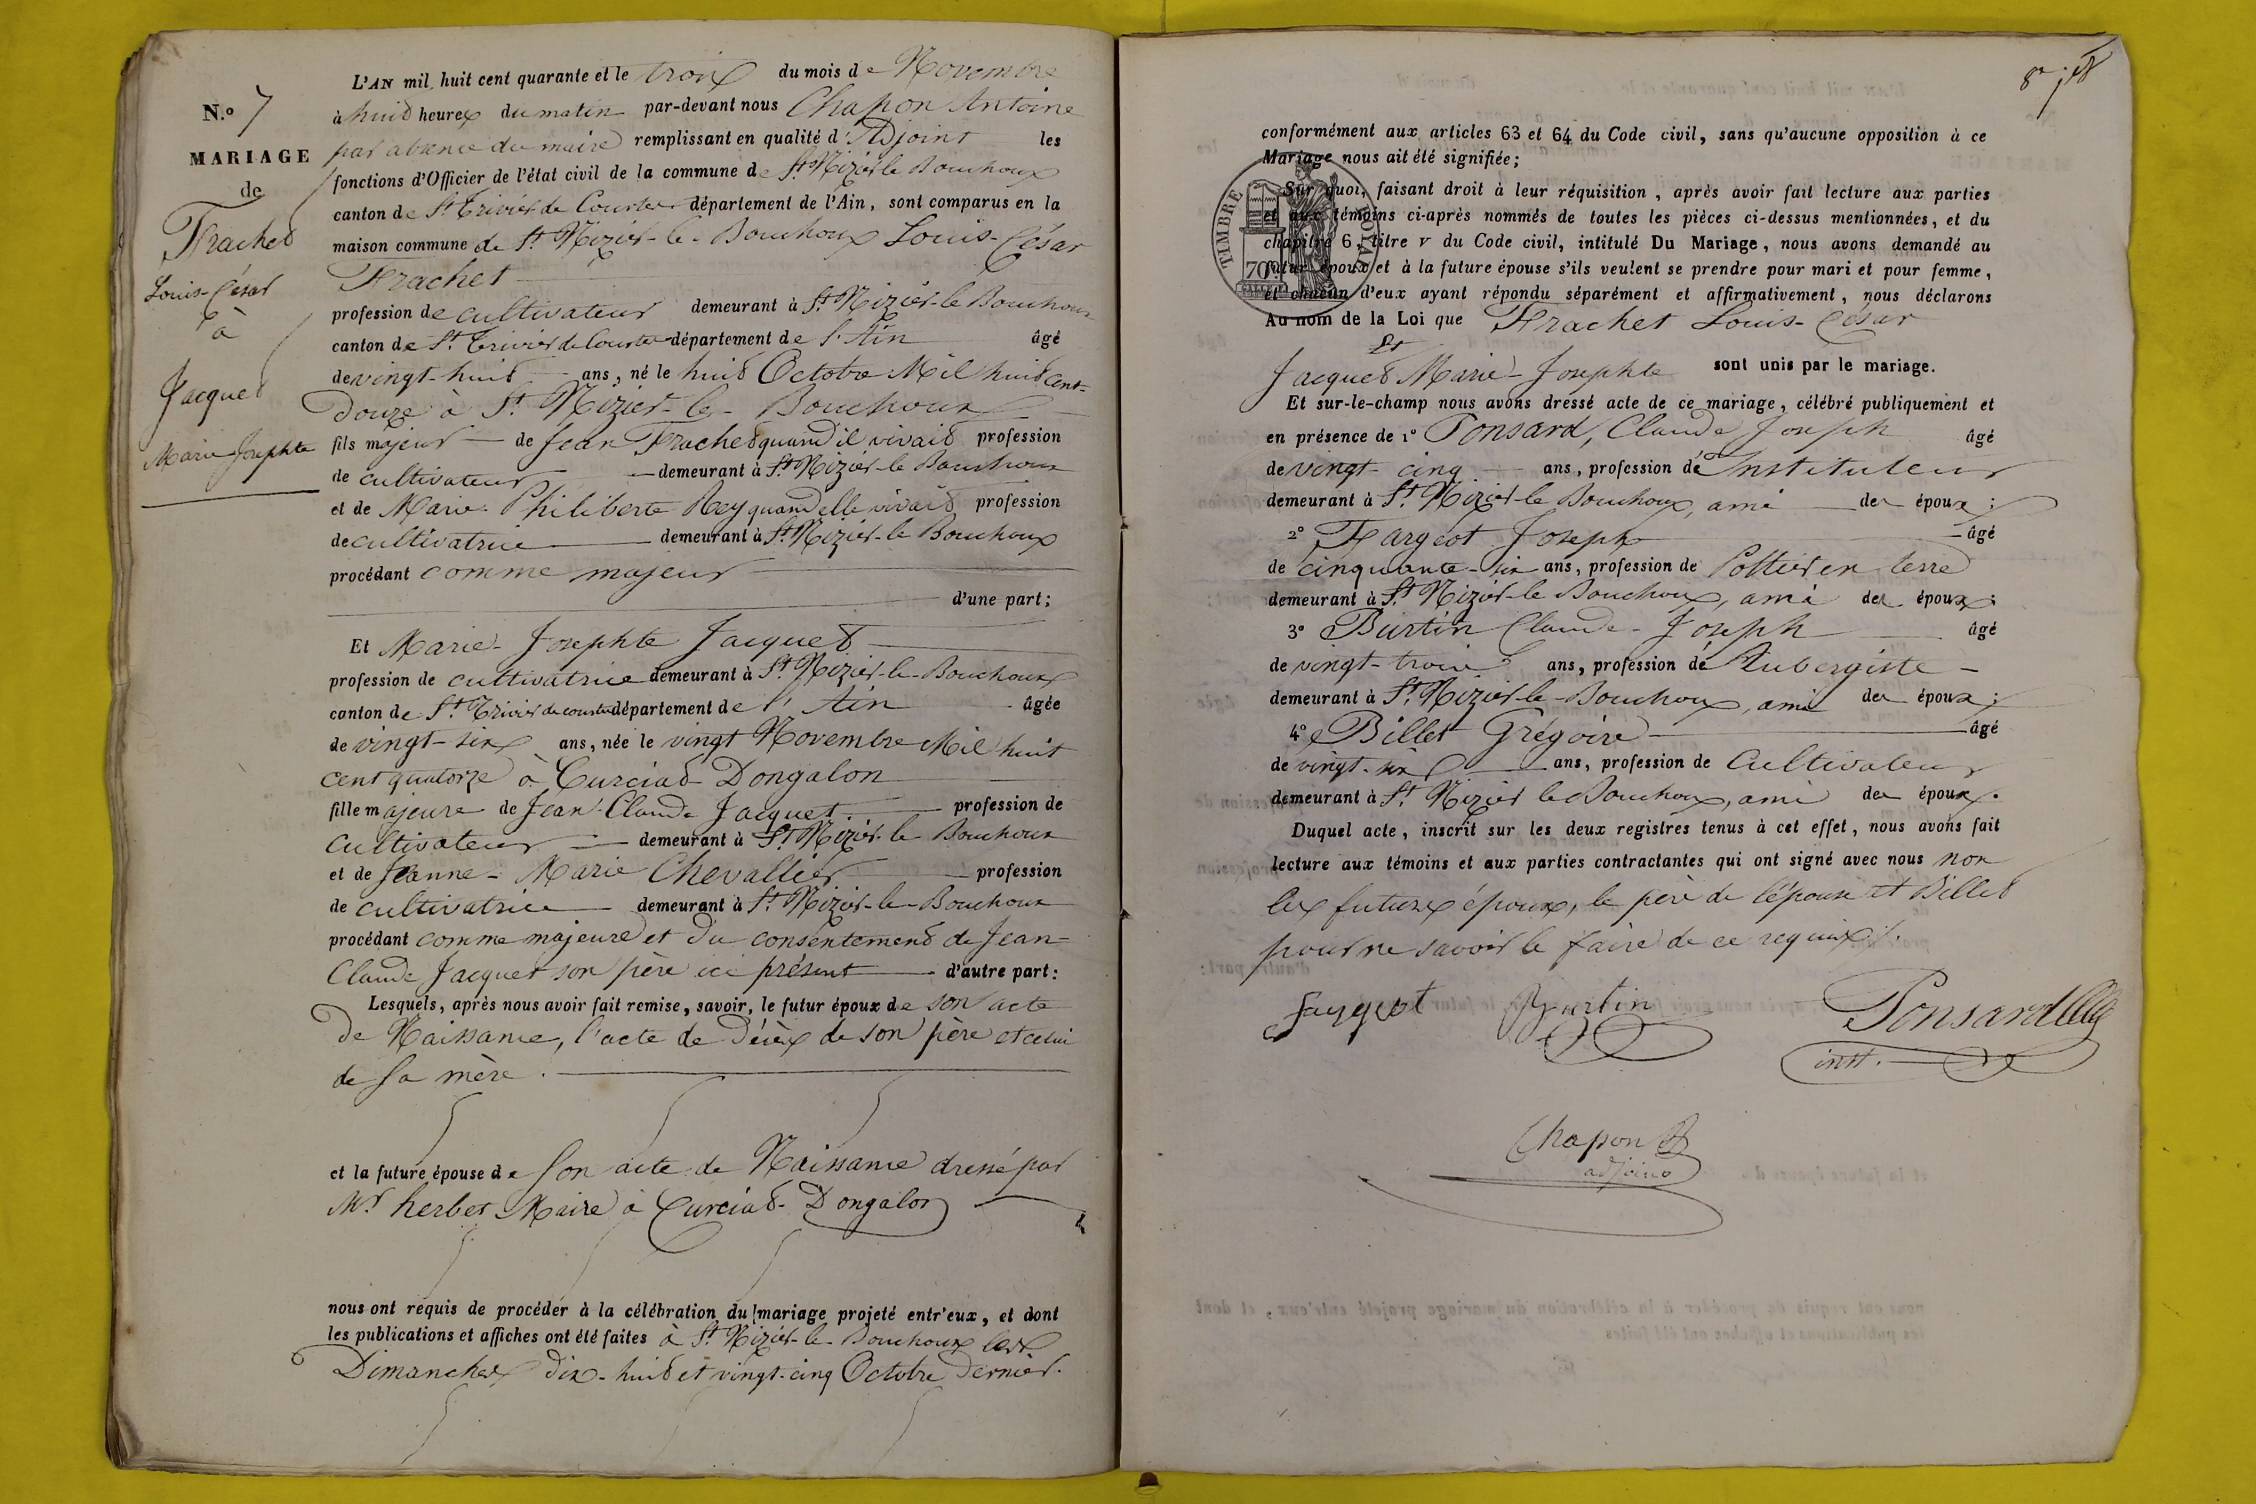 N.º 7
MARIAGE
de
Frachet
Louis-César
à
Jacquet
Marie-Josephte
L'AN mil huit cent quarante et le trois du mois de Novembre
à huit heures du matin par-devant nous Chapon Antoine
par absence du maire remplissant en qualité d'Adjoint les
fonctions d'Officier de l'état civil de la commune de St Nizier-le Bouchoux
canton de St Trivier de Courtes département de l'Ain, sont comparus en la
maison commune de St Nizier-le-Bouchoux Louis-César
Frachet
profession de cultivateur demeurant à St Nizier-le Bouchoux
canton de St Trivier de Courtes département de l'Ain âgé
de vingt-huit ans, né le huit Octobre Mil huit cent-
douze à St Nizier-le-Bouchoux
fils majeur de Jean Frachet quand il vivait profession
de cultivateur demeurant à St Nizier-le Bouchoux
et de Marie Philiberte Rey quand elle vivait profession
de cultivatrice demeurant à St Nizier-le Bouchoux
procédant comme majeur
d'une part;
Et Marie-Josephte Jacquet
profession de cultivatrice demeurant à St Nizier-le-Bouchoux
canton de St Trivier de courtes département de l'Ain âgée
de vingt-six ans, née le vingt Novembre Mil huit
cent quatorze à Curciat-Dongalon
fille majeure de Jean-Claude Jacquet profession de
cultivateur demeurant à St Nizier-le Bouchoux
et de Jeanne-Marie Chevallier profession
de cultivatrice demeurant à St Nizier-le-Bouchoux
procédant comme majeure et du consentement de Jean-
Claude Jacquet son père ici présent d'autre part:
Lesquels, après nous avoir fait remise, savoir, le futur époux de son acte
de Naissance, l'acte de Décèx de son père et celui
de sa mère.
et la future épouse de son acte de Naissance dressé par
Mr herbet Maire à Curciat-Dongalon
nous ont requis de procéder à la célébration du mariage projeté entr'eux, et dont
les publications et affiches ont été faites à St Nizier-le-Bouchoux les
Dimanches dix-huit et vingt-cinq Octobre dernier.
conformément aux articles 63 et 64 du Code civil, sans qu'aucune opposition à ce
Mariage nous ait été signifiée;
Sur quoi, faisant droit à leur réquisition, après avoir fait lecture aux parties
et aux témoins ci-après nommés de toutes les pièces ci-dessus mentionnées, et du
chapitre 6, titre v du Code civil, intitulé Du Mariage, nous avons demandé au
futur époux et à la future épouse s'ils veulent se prendre pour mari et pour femme,
et chacun d'eux ayant répondu séparément et affirmativement, nous déclarons
Au nom de la Loi que Frachet Louis-César
Et
Jacquet Marie-Josephte sont unis par le mariage.
Et sur-le-champ nous avons dressé acte de ce mariage, célébré publiquement et
en présence de 1º Ponsard, Claude Joseph âgé
de vingt-cinq ans, profession de Instituteur
demeurant à St Nizier-le Bouchoux, ami des époux;
2º Fargeot Joseph âgé
de cinquante-six ans, profession de Pottier en terre
demeurant à St Nizier-le Bouchoux, ami des époux;
3º Burtin Claude-Joseph âgé
de vingt-trois ans, profession de Aubergiste
demeurant à St Nizier-le-Bouchoux, ami des époux;
4º Billet Grégoire âgé
de vingt-six ans, profession de Cultivateur
demeurant à St Nizier le Bouchoux, ami des époux.
Duquel acte, inscrit sur les deux registres tenus à cet effet, nous avons fait
lecture aux témoins et aux parties contractantes qui ont signé avec nous non
les futurs époux, le père de l'épouse et Billet
pour ne savoir le faire de ce requis.
Fargeot Burtin Ponsard
inst.
Chapon
adjoint
TIMBRE ROYAL
70